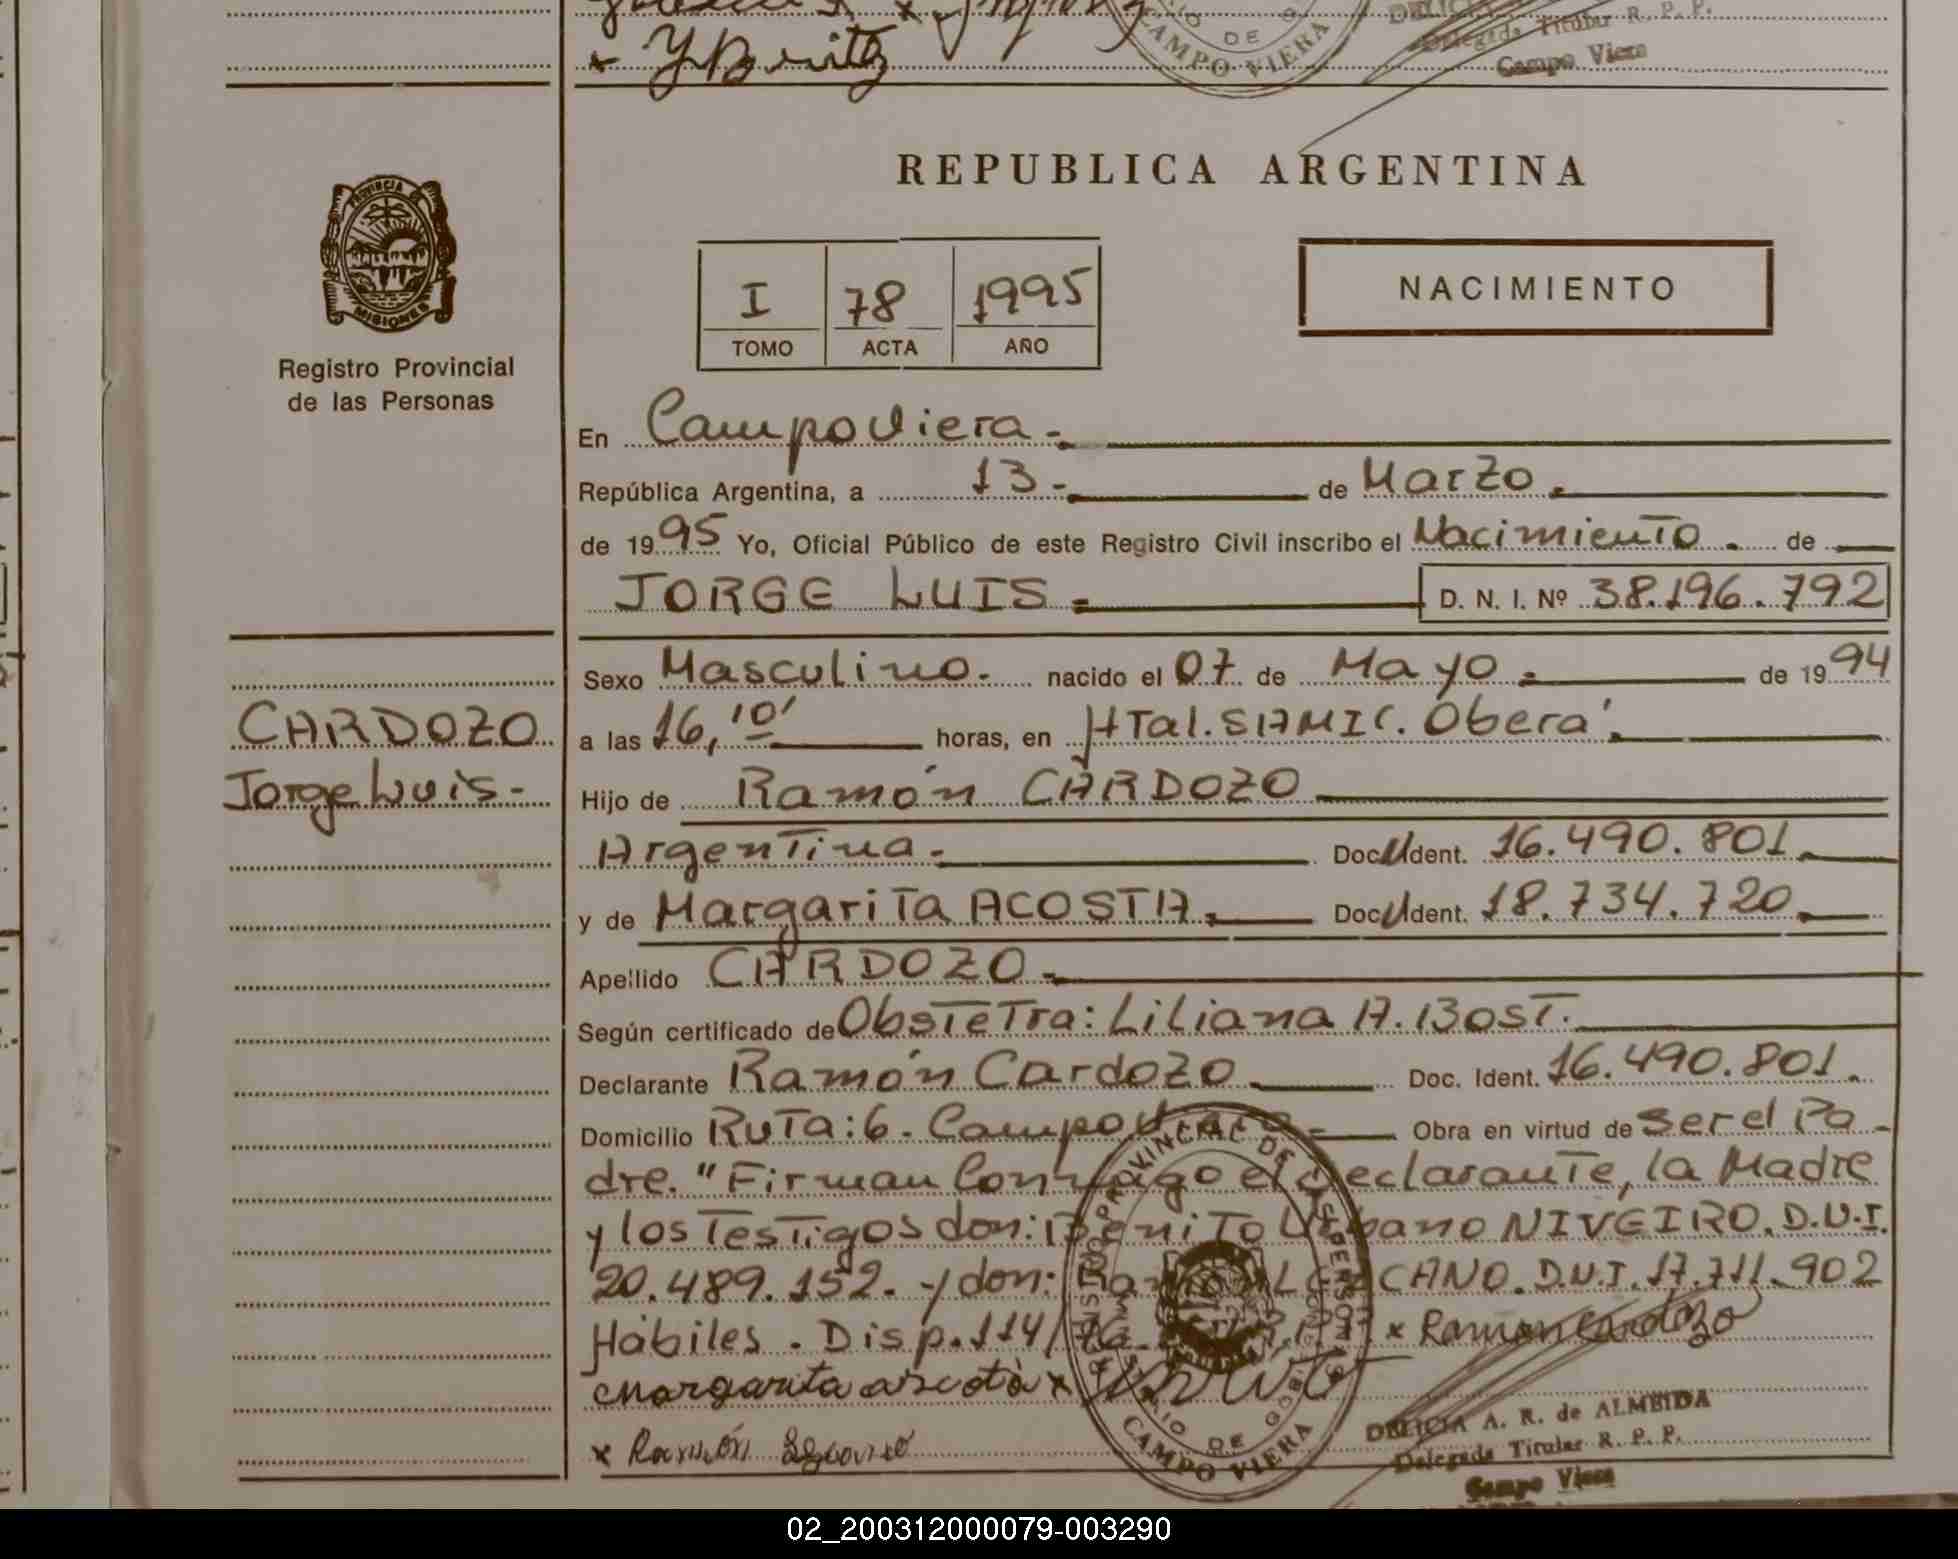 x YBritz
DE
CAMPO VIERA
Delegada Titular R. P. P.
Campo Viera
REPUBLICA ARGENTINA
PROVINCIA DE
MISIONES
Registro Provincial
de las Personas
I 78 1995
TOMO ACTA AÑO
NACIMIENTO
En Campo Viera.-
República Argentina, a 13.- de Marzo.
de 1995 Yo, Oficial Público de este Registro Civil inscribo el Nacimiento. de
JORGE LUIS.- D. N. I. Nº 38.196.792
Sexo Masculino.- nacido el 07 de Mayo.- de 1994
CARDOZO
Jorge Luis.-
a las 16,10' horas, en Htal. SAMIC. Oberá.
Hijo de Ramón CARDOZO
Argentina.- Doc. Ident. 16.490.801.
y de Margarita ACOSTA. Doc. Ident. 18.734.720.
Apellido CARDOZO.-
Según certificado de Obstetra: Liliana A. BOST.
Declarante Ramón Cardozo. Doc. Ident. 16.490.801.
Domicilio Ruta: 6. Campo Viera.- Obra en virtud de ser el Pa-
dre. "Firman Conmigo el declarante, la Madre
y los Testigos don: Benito Urbano NIVEIRO. D.N.I.
20.489.152.- y don: Ramón LEZCANO. D.N.I. 17.711.902
Hábiles. Disp. 114/76. x Ramon Cardozo
margarita acosta x
x Ramón Lezcano
REGISTRO PROVINCIAL DE LAS PERSONAS
MINISTERIO DE GOBIERNO
CAMPO VIERA
DELICIA A. R. de ALMEIDA
Delegada Titular R. P. P.
Campo Viera
02_200312000079-003290